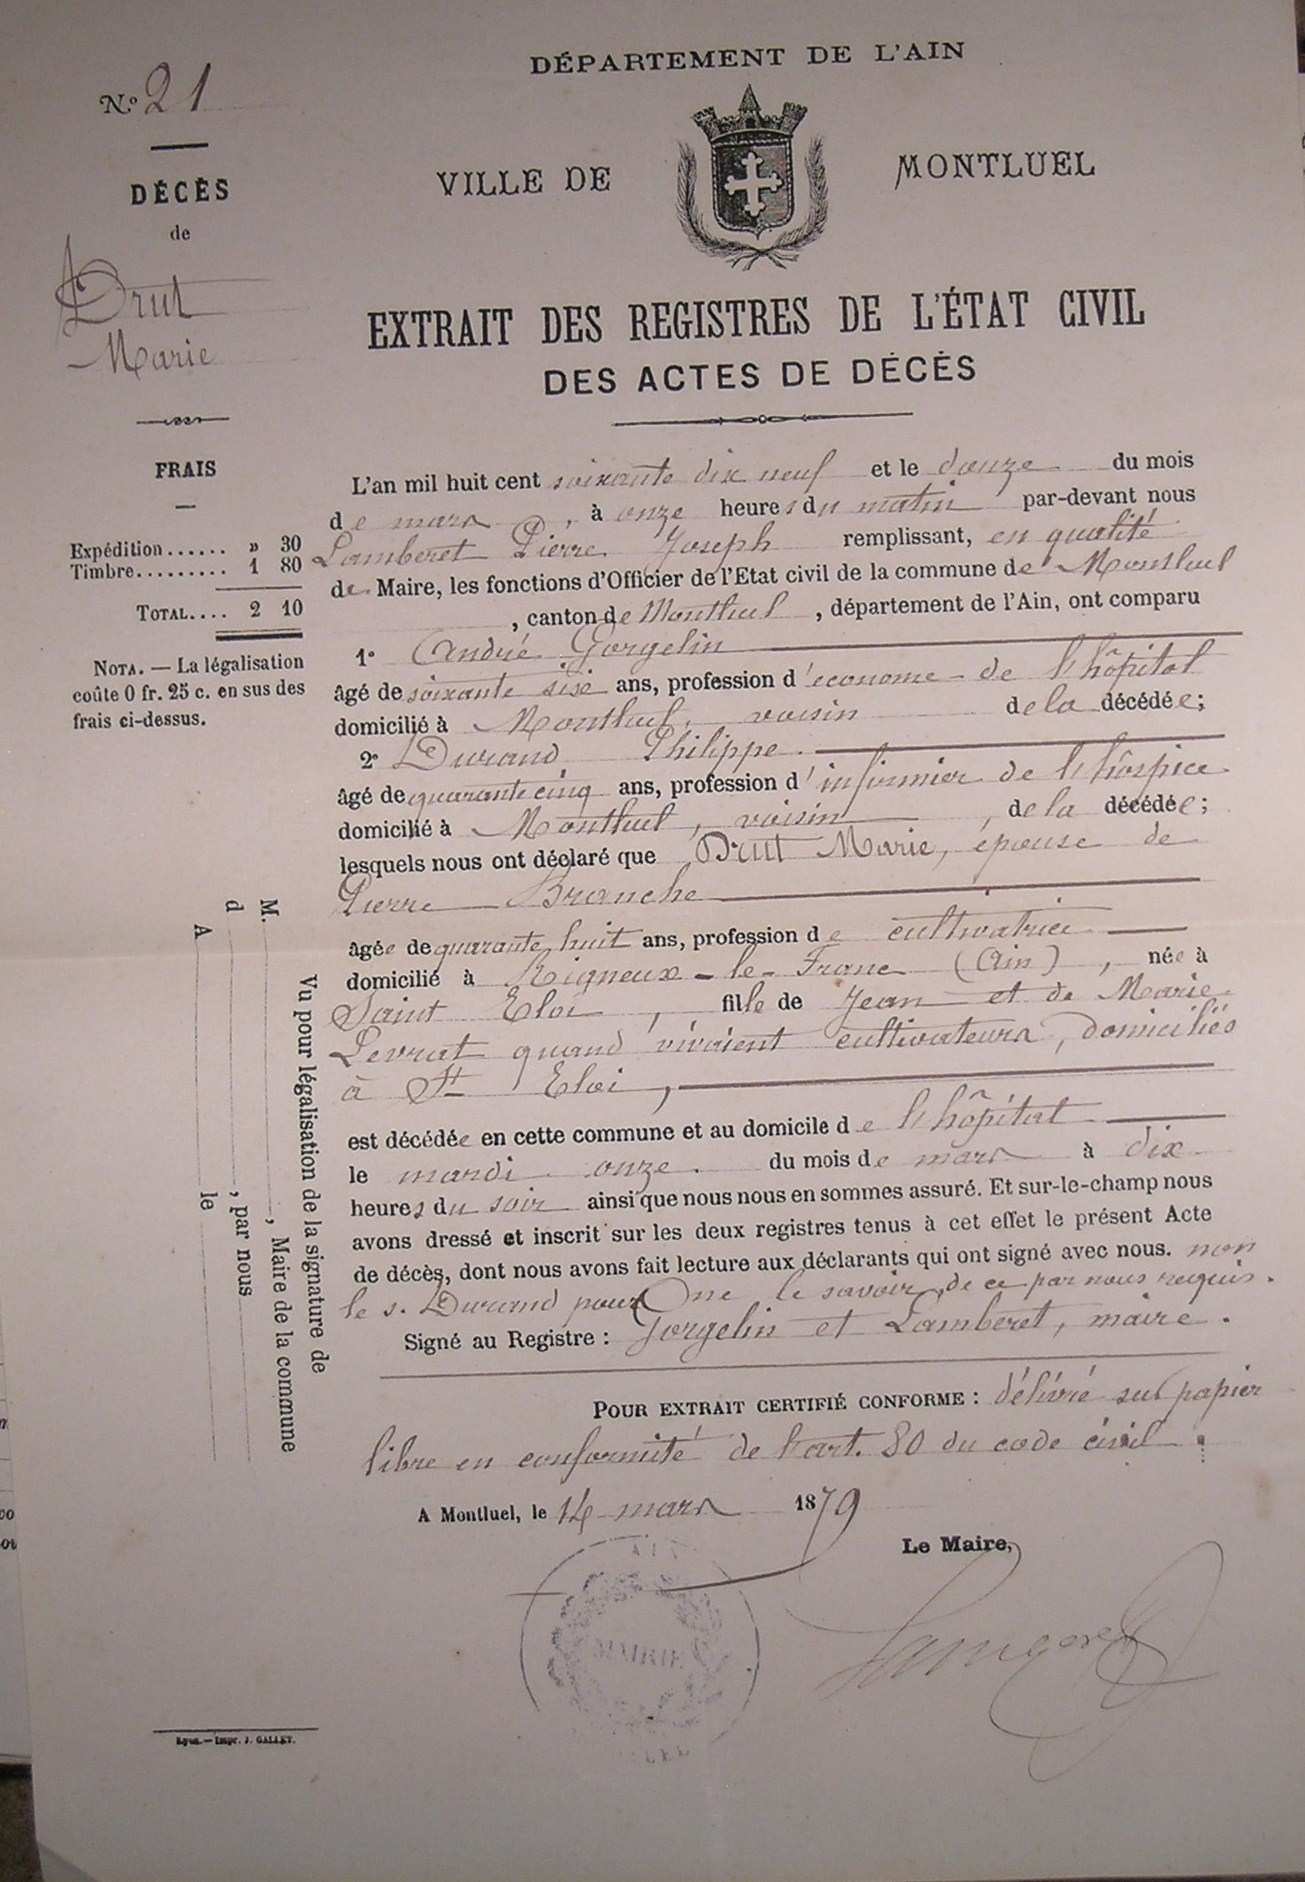 DÉPARTEMENT DE L'AIN
VILLE DE MONTLUEL
EXTRAIT DES REGISTRES DE L'ÉTAT CIVIL
DES ACTES DE DÉCÈS
N.o 21
DÉCÈS
de
Drut
Marie
FRAIS
Expédition...... » 30
Timbre......... 1 80
TOTAL.... 2 10
NOTA. — La légalisation
coûte 0 fr. 25 c. en sus des
frais ci-dessus.
L'an mil huit cent soixante dix neuf et le douze du mois
de mars, à onze heures du matin par-devant nous
Lamberet Pierre Joseph remplissant, en qualité
de Maire, les fonctions d'Officier de l'Etat civil de la commune de Montluel
, canton de Montluel, département de l'Ain, ont comparu
1° André Gorgelin
âgé de soixante six ans, profession d'économe de l'hôpital
domicilié à Montluel, voisin de la décédée;
2° Durand Philippe.
âgé de quarante cinq ans, profession d'infirmier de l'hospice
domicilié à Montluel, voisin, de la décédée;
lesquels nous ont déclaré que Drut Marie, épouse de
Pierre Branche
âgée de quarante huit ans, profession de cultivatrice
domicilié à Rigneux-le-Franc (Ain), née à
Saint Eloi, fille de Jean et de Marie
Levrat quand vivaient cultivateurs, domiciliés
à St Eloi,
est décédée en cette commune et au domicile de l'hôpital
le mardi onze. du mois de mars à dix
heures du soir ainsi que nous nous en sommes assuré. Et sur-le-champ nous
avons dressé et inscrit sur les deux registres tenus à cet effet le présent Acte
de décès, dont nous avons fait lecture aux déclarants qui ont signé avec nous. non
le s. Durand pour ne le savoir, de ce par nous requis.
Signé au Registre : Gorgelin et Lamberet, maire.
POUR EXTRAIT CERTIFIÉ CONFORME : délivré sur papier
libre en conformité de l'art. 80 du code civil.
A Montluel, le 14 mars 1879
Le Maire,
Lamberet
MAIRIE
Vu pour légalisation de la signature de
M. , Maire de la commune
d , par nous
A le
Lyon.—Impr. J. GALLET.